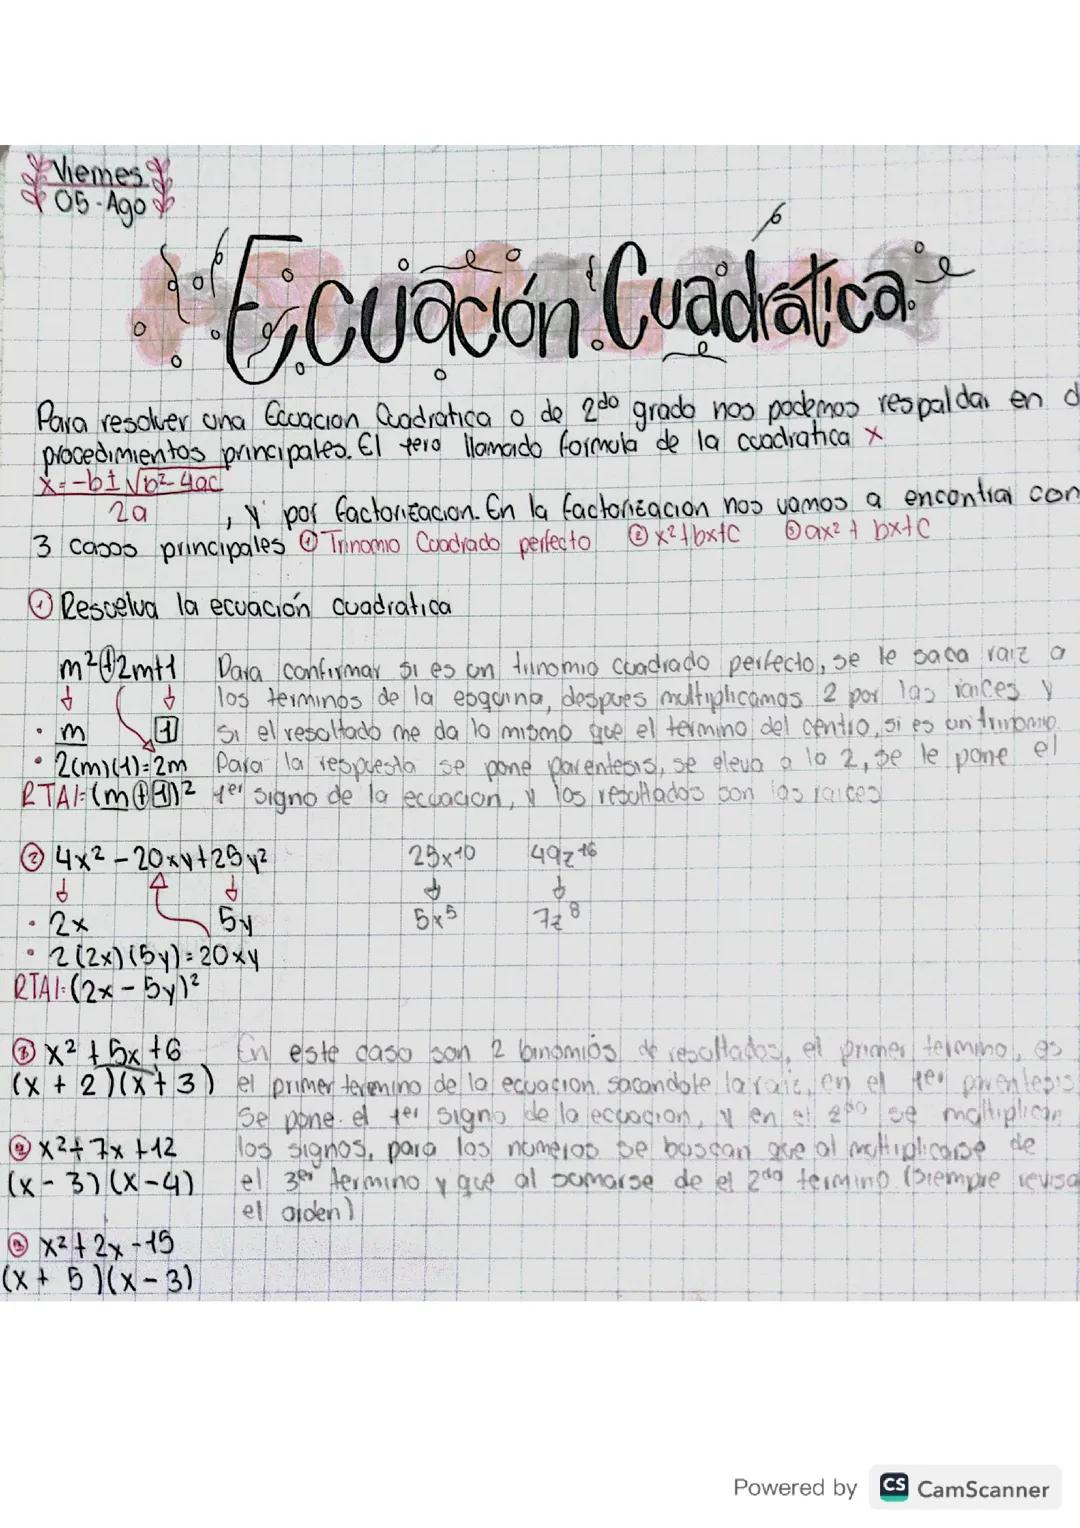 Viernes
05-Ago
Ecuación Cuadrática
Para resolver una Ecuacion Cuadratica o de 2do grado nos podemos respaldar en d
procedimientos principales. El 1ero llamado formula de la cuadratica x
x=-b±√b²-4ac
2a
, y por factorizacion. En la factorizacion nos vamos a encontrar con
3 casos principales ① Trinomio Cuadrado perfecto ② x²+bx+C ③ ax²+bx+C
① Resuelva la ecuación cuadratica
m²+2m+1 Para confirmar si es un trinomio cuadrado perfecto, se le saca raiz a
los terminos de la esquina, despues multiplicamos 2 por las raices y
· m 1 si el resultado me da lo mismo que el termino del centro, si es un trinomio.
· 2(m)(1)=2m Para la respuesta se pone parentesis, se eleva a la 2, se le pone el
RTA/:(m+1)² 1er signo de la ecuacion, y los resultados son las raices
② 4x²-20xy+25y² 25x¹⁰ 49z¹⁶
· 2x 5y 5x⁵ 7z⁸
· 2(2x)(5y)=20xy
RTA/:(2x-5y)²
③ x²+5x+6 En este caso son 2 binomios de resultados, el primer termino, es
(x+2)(x+3) el primer teremino de la ecuacion sacandole la raiz, en el 1er parentesis
se pone el 1er signo de la ecuacion, y en el 2do se multiplican
② x²+7x+12 los signos, para los numeros se buscan que al multiplicarse de
(x-3)(x-4) el 3er termino y que al sumarse de el 2do termino (Siempre revisa
el orden)
③ x²+2x-15
(x+5)(x-3)
Powered by CS CamScanner